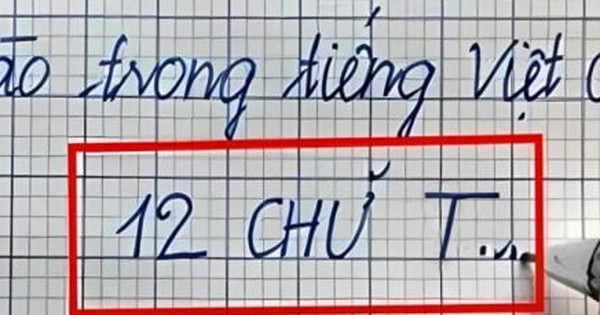 trong tiếng Việt
12 CHỮ T...